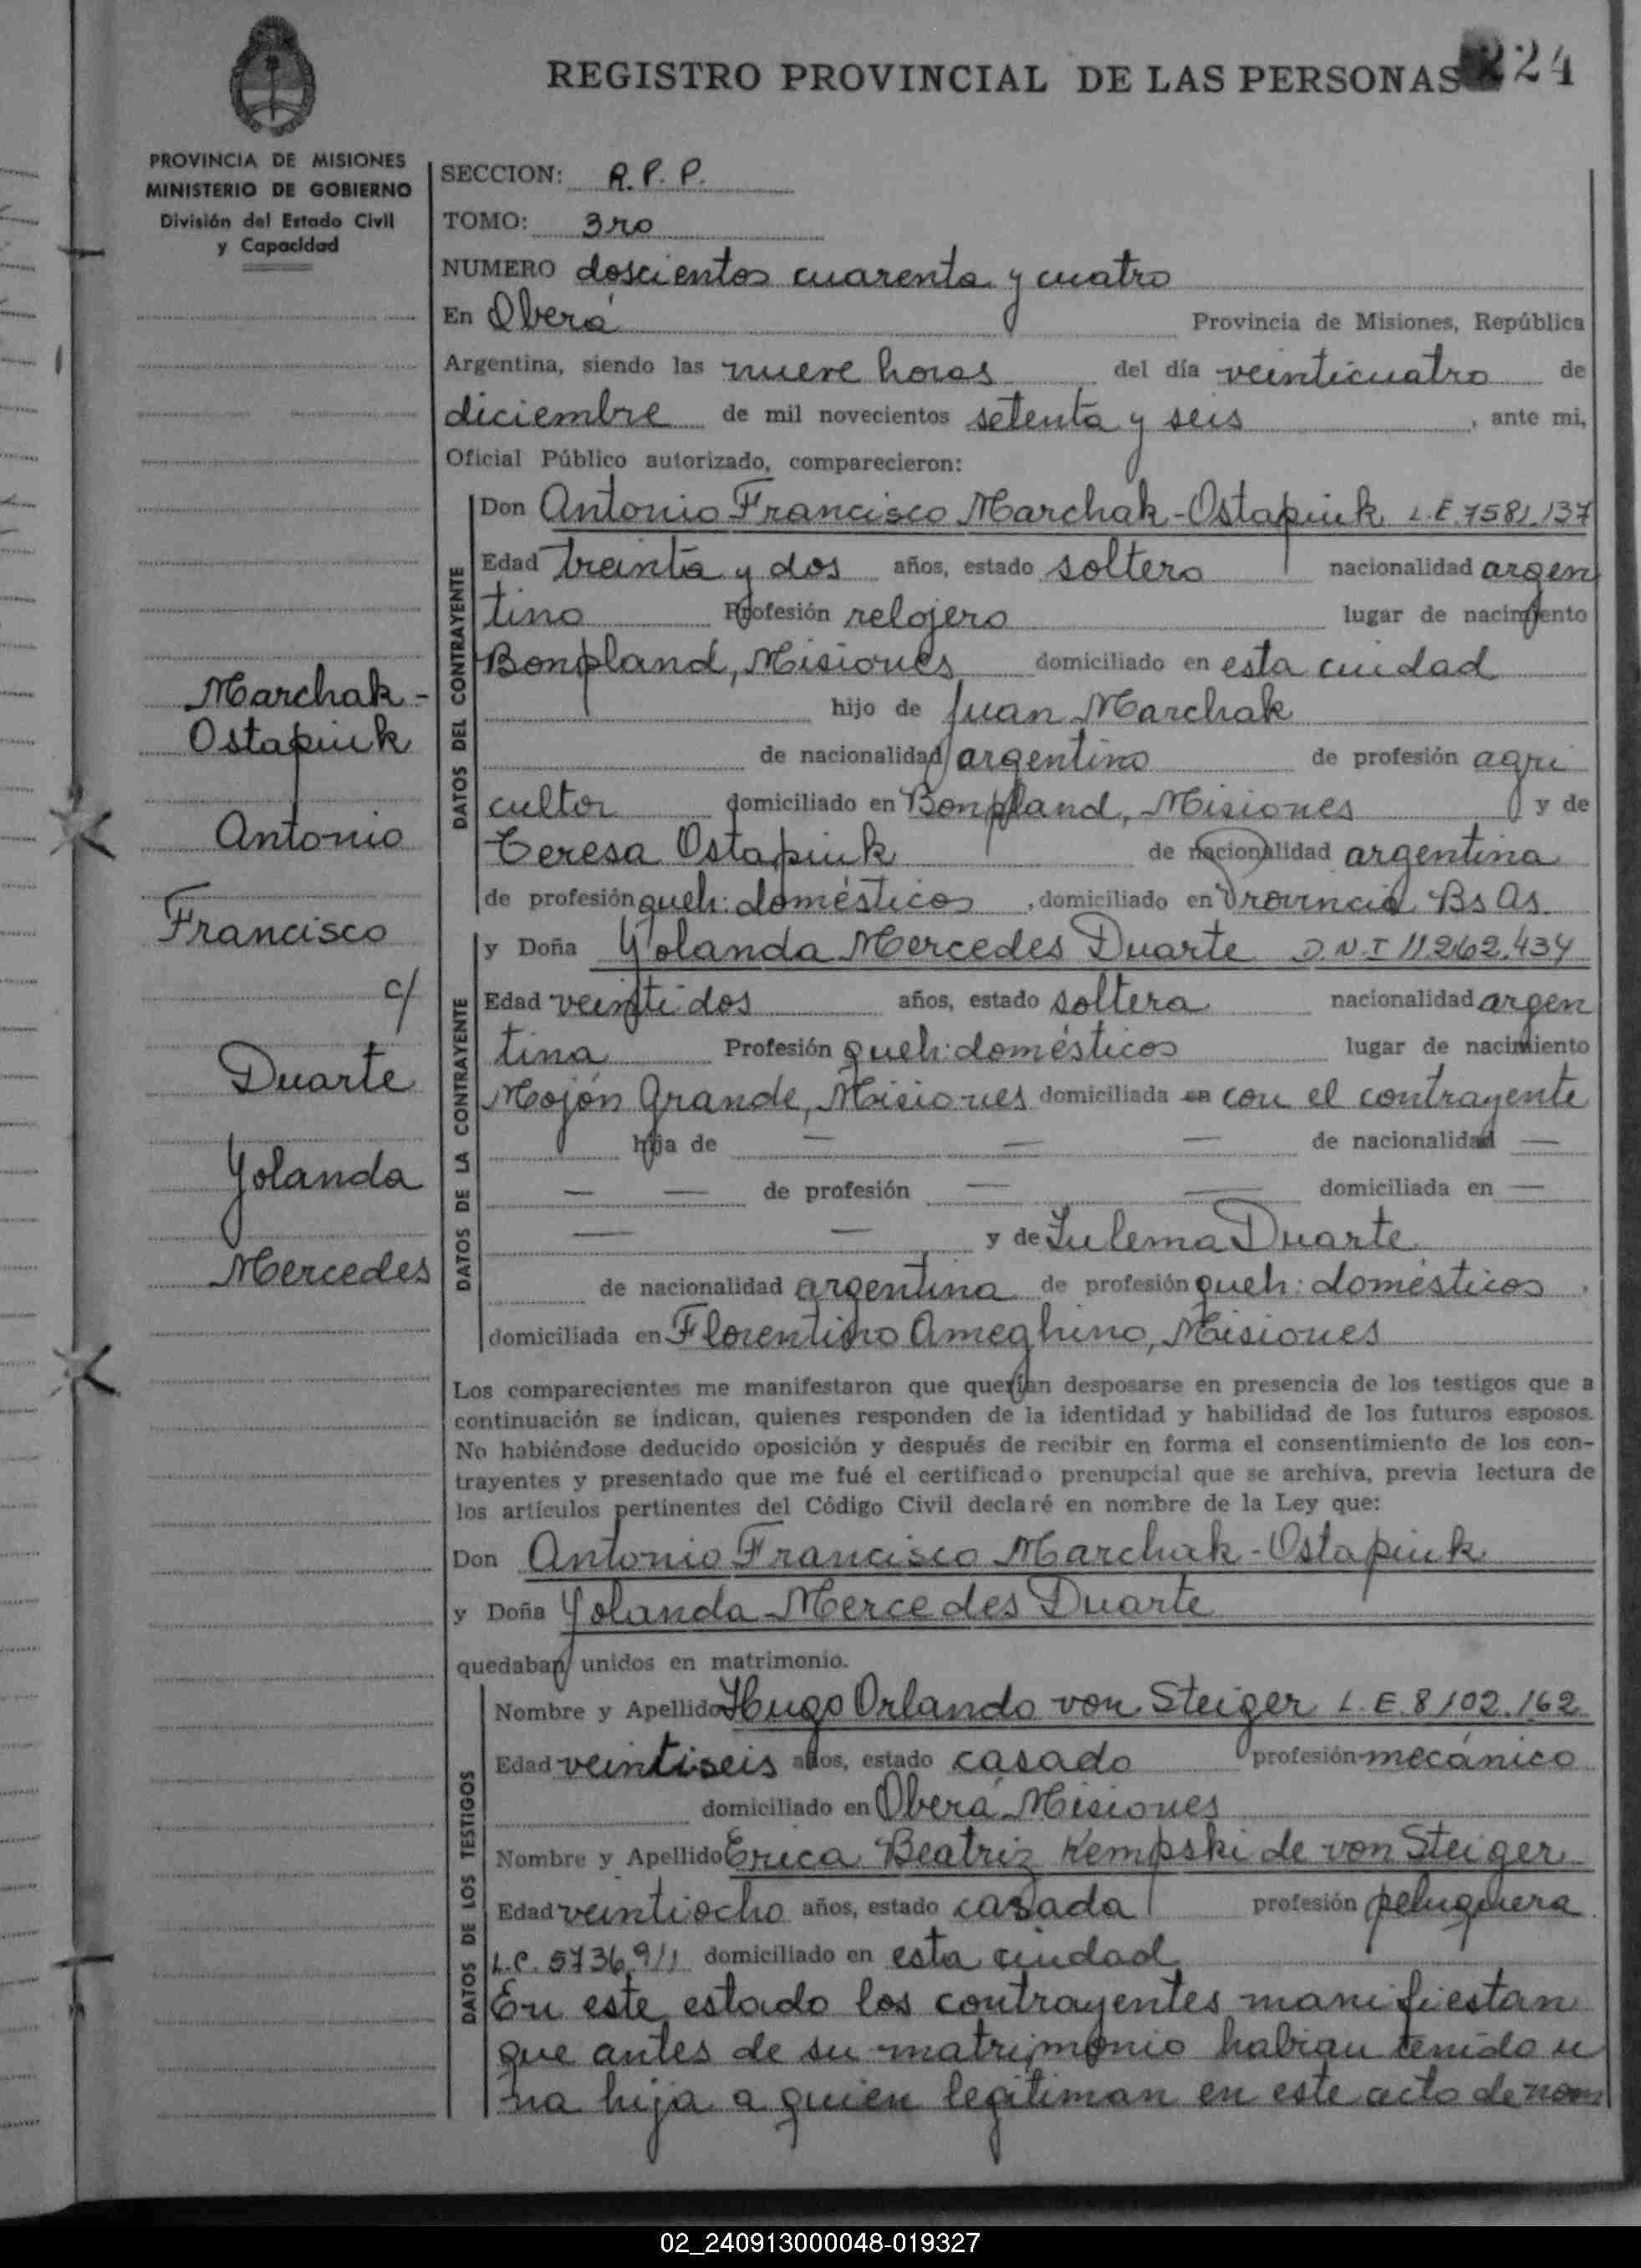 REGISTRO PROVINCIAL DE LAS PERSONAS 224
PROVINCIA DE MISIONES
MINISTERIO DE GOBIERNO
División del Estado Civil
y Capacidad
SECCION: R. P. P.
TOMO: 3ro
NUMERO doscientos cuarenta y cuatro
En Oberá Provincia de Misiones, República
Argentina, siendo las nueve horas del día veinticuatro de
diciembre de mil novecientos setenta y seis, ante mi,
Oficial Público autorizado, comparecieron:
DATOS DEL CONTRAYENTE
Don Antonio Francisco Marchak-Ostapiuk L.E. 7581.137
Edad treinta y dos años, estado soltero nacionalidad argen
tino Profesión relojero lugar de nacimiento
Bonpland, Misiones domiciliado en esta ciudad
hijo de Juan Marchak
de nacionalidad argentino de profesión agri
cultor domiciliado en Bonpland, Misiones y de
Teresa Ostapiuk de nacionalidad argentina
de profesión queh: domésticos, domiciliado en Provincia Bs As
Marchak-
Ostapiuk
Antonio
Francisco
c/
Duarte
Yolanda
Mercedes
DATOS DE LA CONTRAYENTE
y Doña Yolanda Mercedes Duarte D.N.I 11.262.434
Edad veintidos años, estado soltera nacionalidad argen
tina Profesión queh: domésticos lugar de nacimiento
Mojón Grande, Misiones domiciliada en con el contrayente
hija de — — — de nacionalidad —
— — de profesión — — domiciliada en —
— — y de Zulema Duarte
de nacionalidad argentina de profesión queh: domésticos.
domiciliada en Florentino Ameghino, Misiones
Los comparecientes me manifestaron que querían desposarse en presencia de los testigos que a
continuación se indican, quienes responden de la identidad y habilidad de los futuros esposos.
No habiéndose deducido oposición y después de recibir en forma el consentimiento de los con-
trayentes y presentado que me fué el certificado prenupcial que se archiva, previa lectura de
los artículos pertinentes del Código Civil declaré en nombre de la Ley que:
Don Antonio Francisco Marchak-Ostapiuk
y Doña Yolanda Mercedes Duarte
quedaban unidos en matrimonio.
DATOS DE LOS TESTIGOS
Nombre y Apellido Hugo Orlando von Steiger L.E. 8102.162
Edad veintiseis años, estado casado profesión mecánico
domiciliado en Oberá Misiones
Nombre y Apellido Erica Beatriz Kempski de von Steiger
Edad veintiocho años, estado casada profesión peluquera
L.C. 5736.911 domiciliado en esta ciudad
En este estado los contrayentes manifiestan
que antes de su matrimonio habian tenido u
na hija a quien legitiman en este acto de nom
02_240913000048-019327